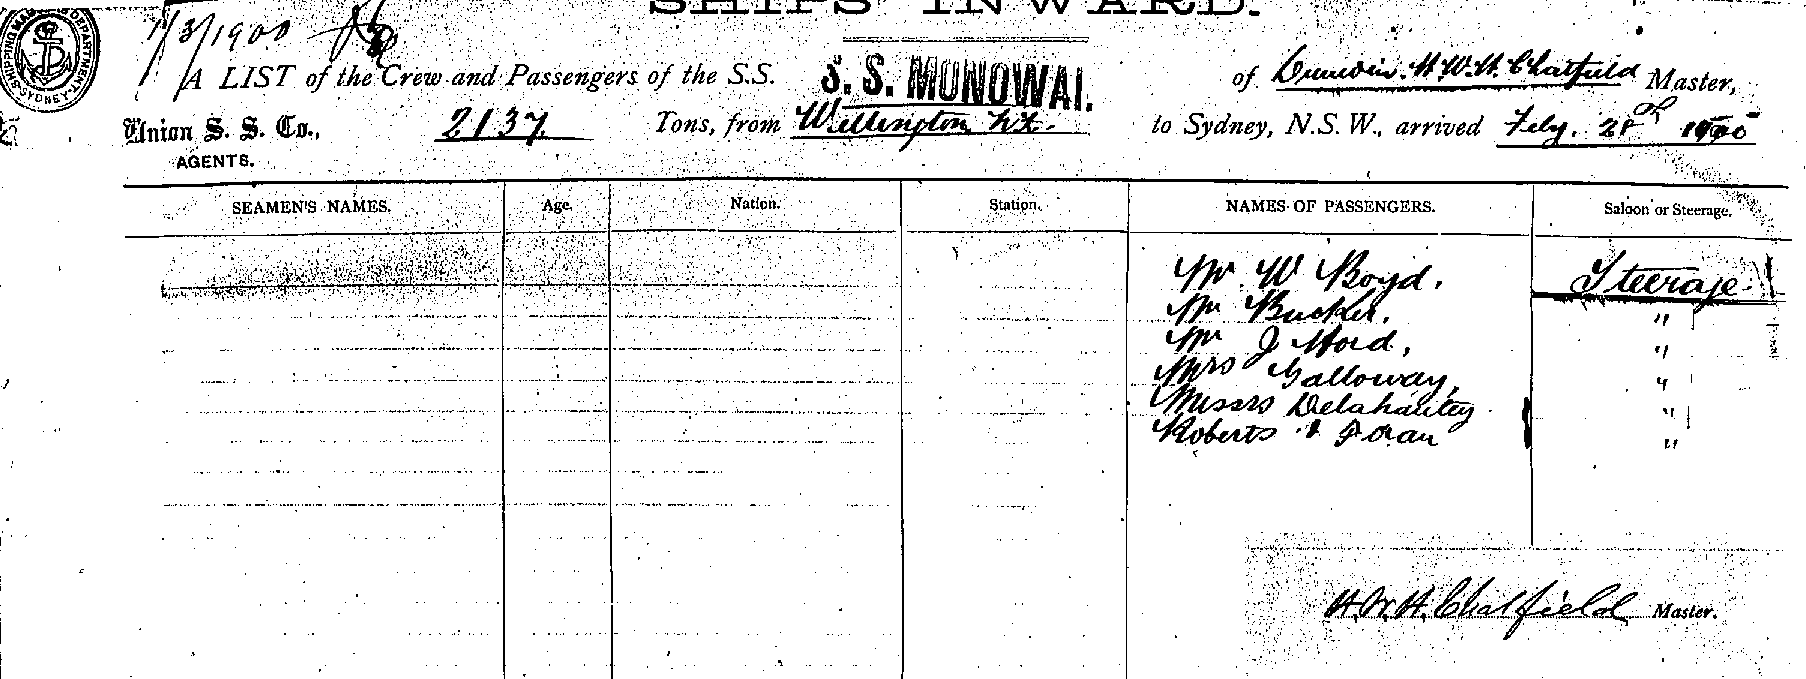 SHIPS INWARD.
SHIPPING MASTER'S DEPARTMENT SYDNEY
1/3/1900
A LIST of the Crew and Passengers of the S.S. S. S. MONOWAI. of Dunedin. H. W. H. Chatfield Master,
Union S. S. Co., 2137 Tons, from Wellington N.Z. to Sydney, N.S.W., arrived Feby. 28th 1900
AGENTS.
SEAMEN'S NAMES. Age. Nation. Station. NAMES OF PASSENGERS. Saloon or Steerage.
Mr W Boyd. Steerage
Mr Bucker. "
Mr J Hord, "
Mrs Galloway, "
Messrs Delahautey "
Roberts & Doran "
H. W. H. Chatfield Master.